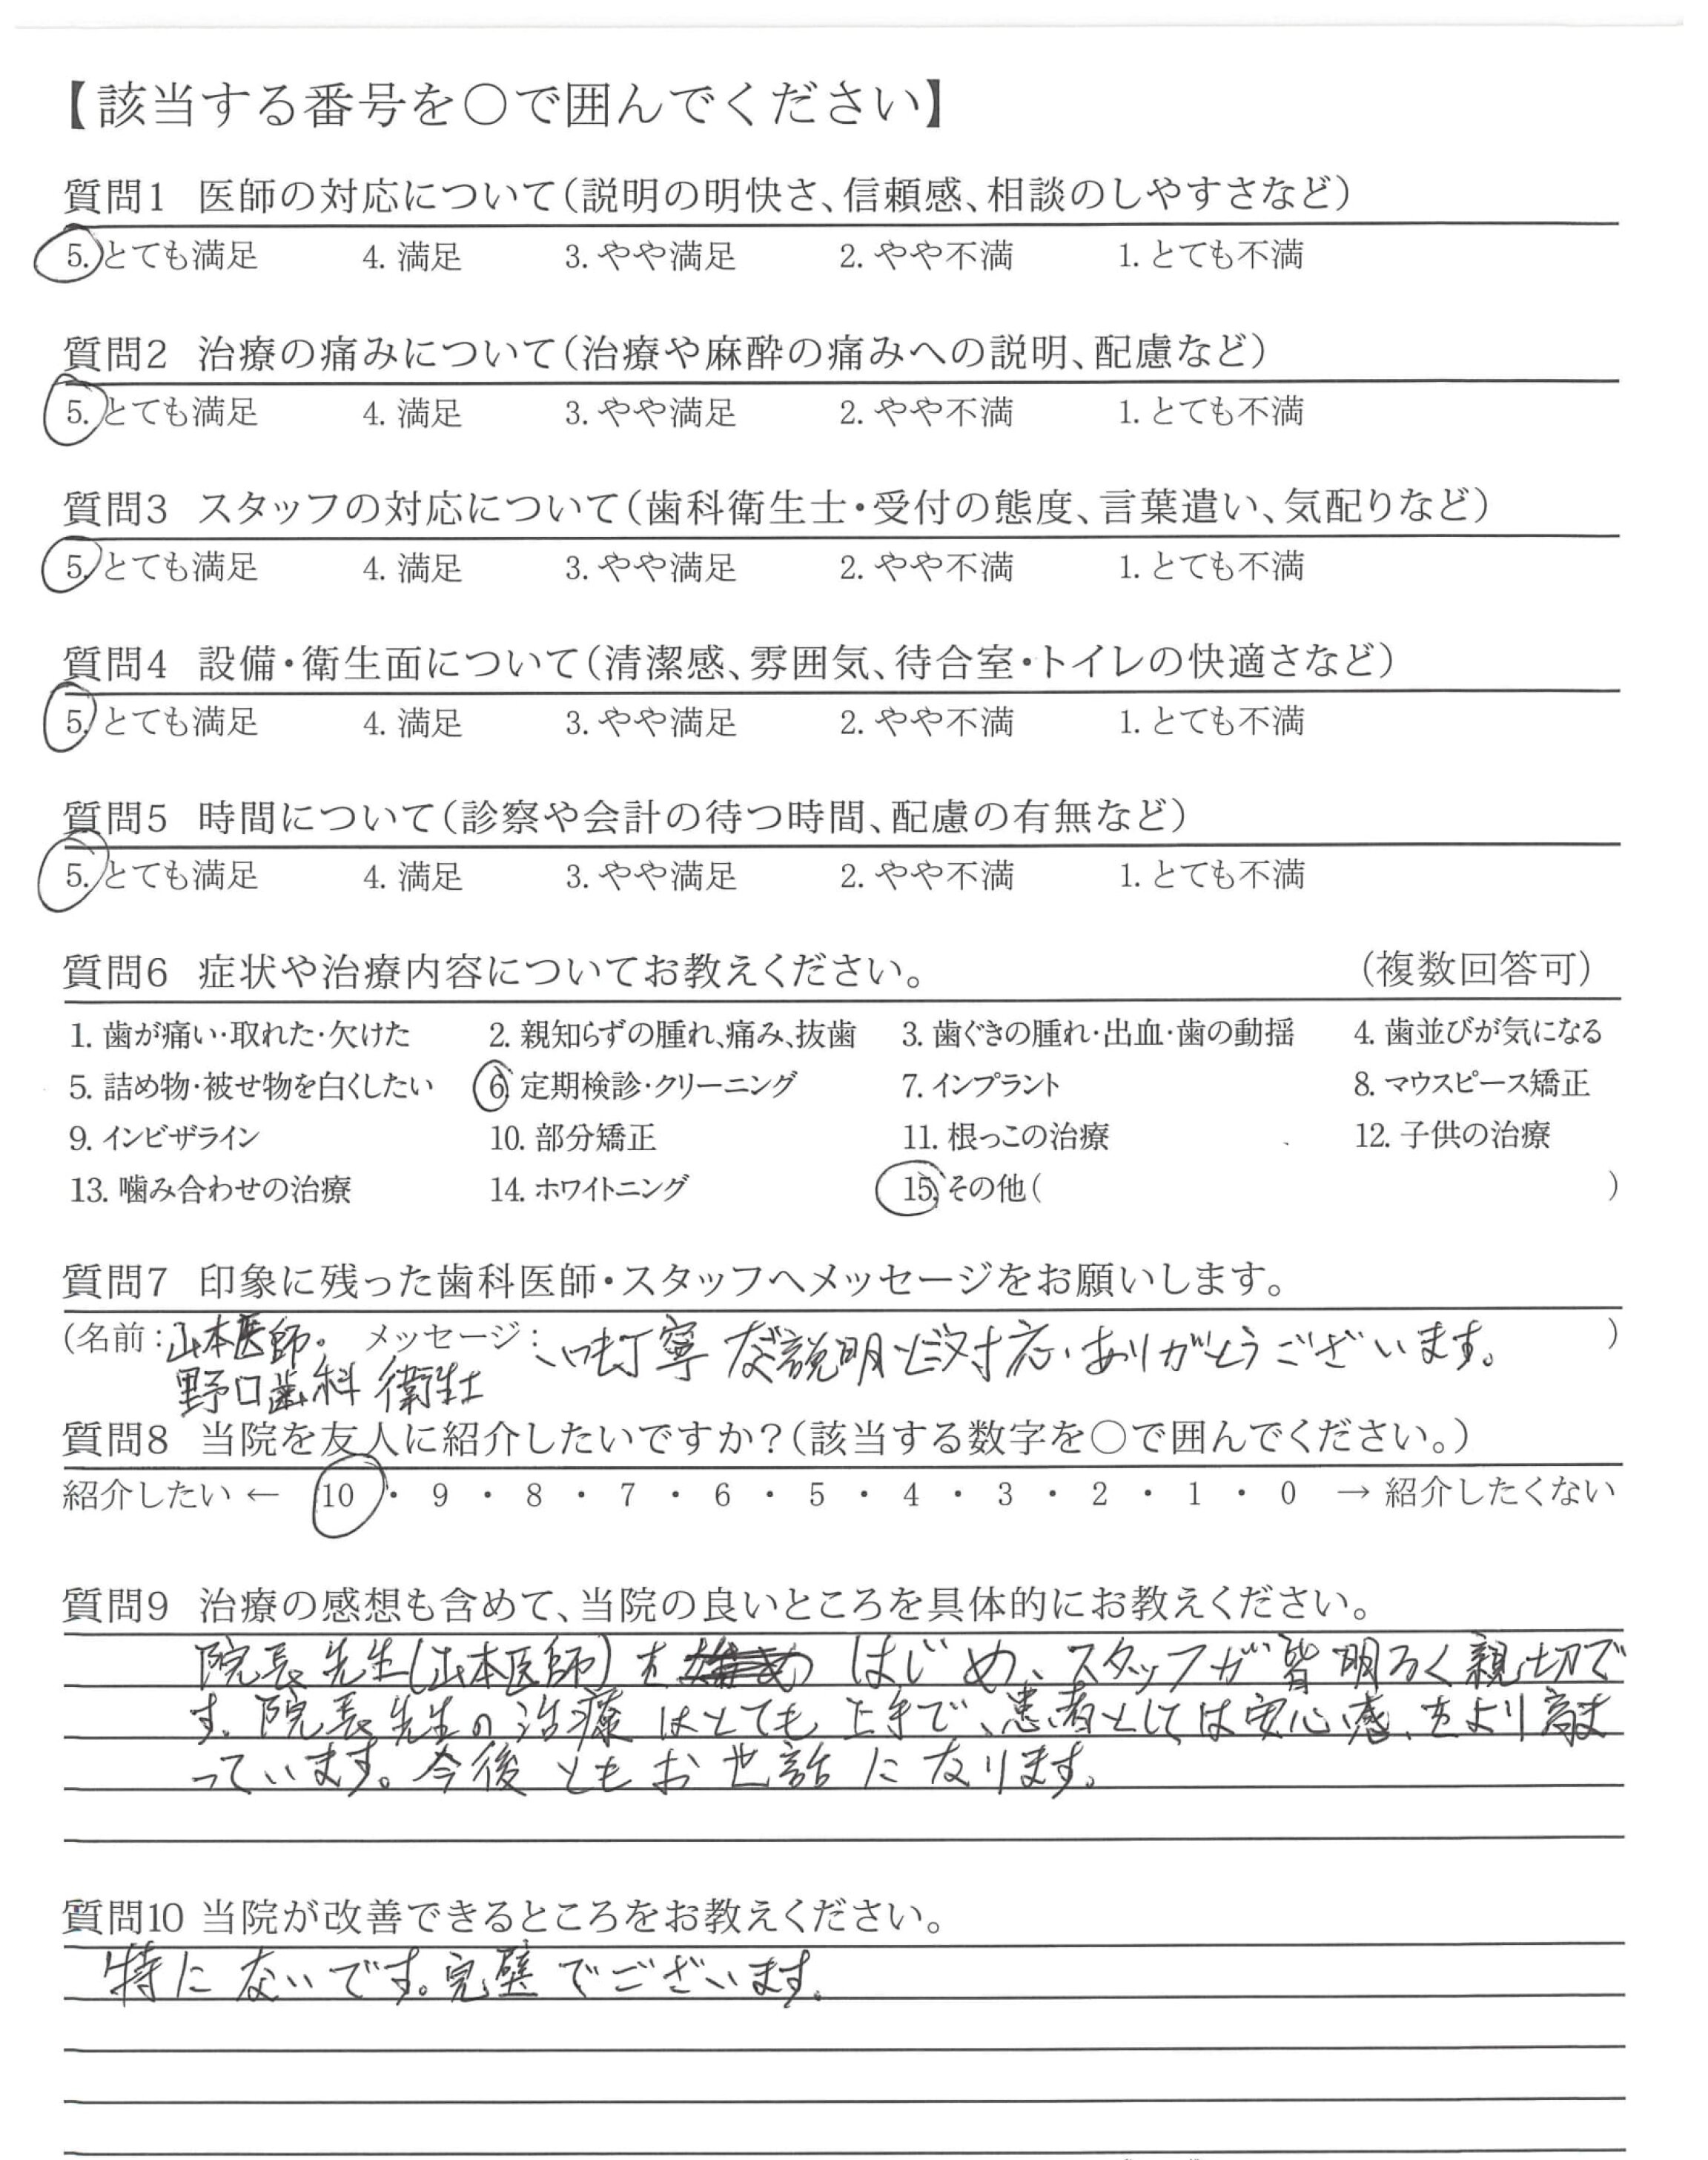 【該当する番号を〇で囲んでください】
質問1 医師の対応について(説明の明快さ、信頼感、相談のしやすさなど)
5. とても満足 4. 満足 3. やや満足 2. やや不満 1. とても不満
質問2 治療の痛みについて(治療や麻酔の痛みへの説明、配慮など)
5. とても満足 4. 満足 3. やや満足 2. やや不満 1. とても不満
質問3 スタッフの対応について(歯科衛生士・受付の態度、言葉遣い、気配りなど)
5. とても満足 4. 満足 3. やや満足 2. やや不満 1. とても不満
質問4 設備・衛生面について(清潔感、雰囲気、待合室・トイレの快適さなど)
5. とても満足 4. 満足 3. やや満足 2. やや不満 1. とても不満
質問5 時間について(診察や会計の待つ時間、配慮の有無など)
5. とても満足 4. 満足 3. やや満足 2. やや不満 1. とても不満
質問6 症状や治療内容についてお教えください。 (複数回答可)
1. 歯が痛い・取れた・欠けた 2. 親知らずの腫れ、痛み、抜歯 3. 歯ぐきの腫れ・出血・歯の動揺 4. 歯並びが気になる
5. 詰め物・被せ物を白くしたい 6. 定期検診・クリーニング 7. インプラント 8. マウスピース矯正
9. インビザライン 10. 部分矯正 11. 根っこの治療 12. 子供の治療
13. 噛み合わせの治療 14. ホワイトニング 15. その他( )
質問7 印象に残った歯科医師・スタッフへメッセージをお願いします。
(名前:山本医師. メッセージ:いつも丁寧な説明と対応、ありがとうございます。 )
野口歯科衛生士
質問8 当院を友人に紹介したいですか?(該当する数字を〇で囲んでください。)
紹介したい ← 10 ・ 9 ・ 8 ・ 7 ・ 6 ・ 5 ・ 4 ・ 3 ・ 2 ・ 1 ・ 0 → 紹介したくない
質問9 治療の感想も含めて、当院の良いところを具体的にお教えください。
院長先生(山本医師)を はじめ、スタッフが皆明るく親切で
す。院長先生の治療はとても上手で、患者としては安心感をより高ま
っています。今後ともお世話になります。
質問10 当院が改善できるところをお教えください。
特にないです。完璧でございます。